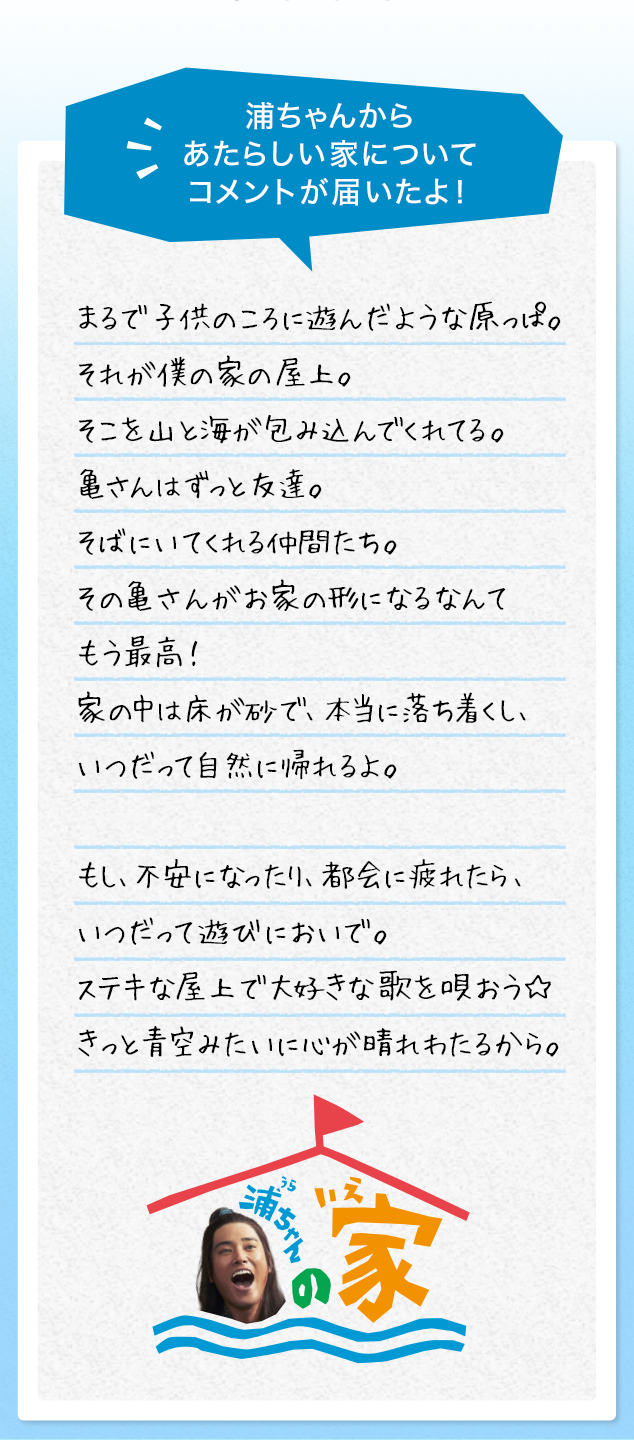 浦ちゃんから
あたらしい家について
コメントが届いたよ！
まるで子供のころに遊んだような原っぱ。
それが僕の家の屋上。
そこを山と海が包み込んでくれてる。
亀さんはずっと友達。
そばにいてくれる仲間たち。
その亀さんがお家の形になるなんて
もう最高！
家の中は床が砂で、本当に落ち着くし、
いつだって自然に帰れるよ。
もし、不安になったり、都会に疲れたら、
いつだって遊びにおいで。
ステキな屋上で大好きな歌を唄おう☆
きっと青空みたいに心が晴れわたるから。
うら いえ
浦ちゃんの家